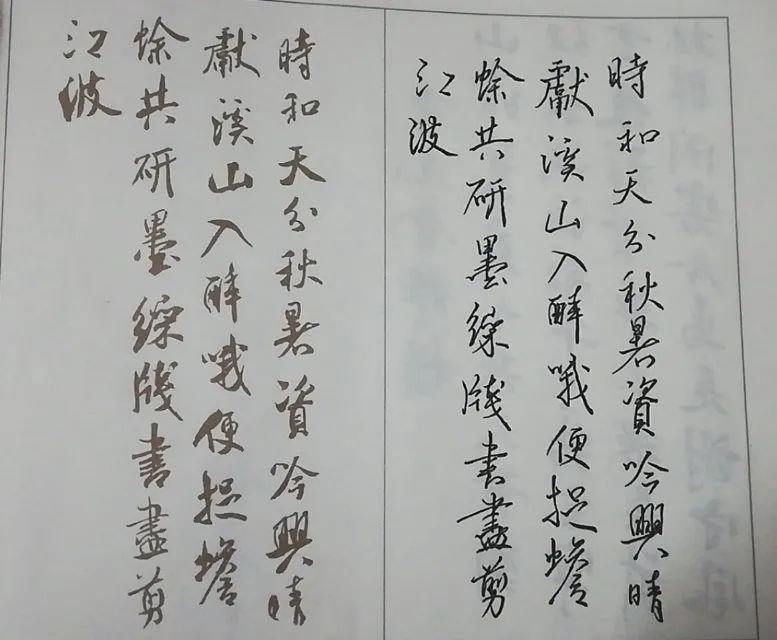 時和天分秋暑資吟興晴
獻溪山入醉哦便捉蟾
蜍共研墨綵牋書盡剪
江波
時和天分秋暑資吟興晴
獻溪山入醉哦便捉蟾
蜍共研墨綵牋書盡剪
江波